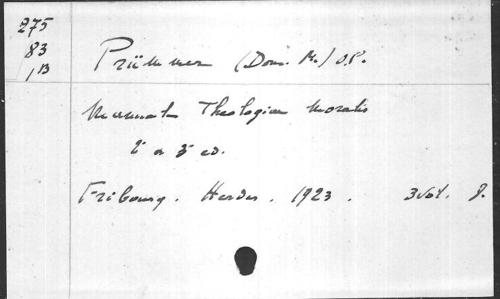 275
83
1B
Prümmer (Dom. M.) O.P.
Manuale Theologiae moralis
2 a 3 ed.
Fribourg. Herder. 1923. 3 vol. 8.